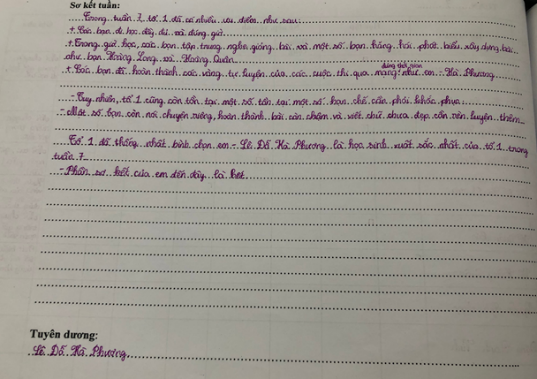 Sơ kết tuần:
Trong tuần 7, tổ 1 đã có nhiều ưu điểm như sau:
+ Các bạn đi học đầy đủ và đúng giờ.
+ Trong giờ học, các bạn tập trung nghe giảng bài và một số bạn hăng hái phát biểu xây dựng bài
như bạn Hoàng Long và Hoàng Quân
đúng thời gian
+ Các bạn đã hoàn thành các vòng tự luyện của các cuộc thi qua mạng như em - Hà Phương
- Tuy nhiên, tổ 1 cũng còn tồn tại một số tồn tại một số hạn chế cần phải khắc phục
- Một số bạn còn nói chuyện riêng, hoàn thành bài còn chậm và viết chữ chưa đẹp cần rèn luyện thêm
Tổ 1 đã thống nhất bình chọn em - Lê Đỗ Hà Phương là học sinh xuất sắc nhất của tổ 1 trong
tuần 7
- Phần sơ kết của em đến đây là hết
Tuyên dương:
Lê Đỗ Hà Phương